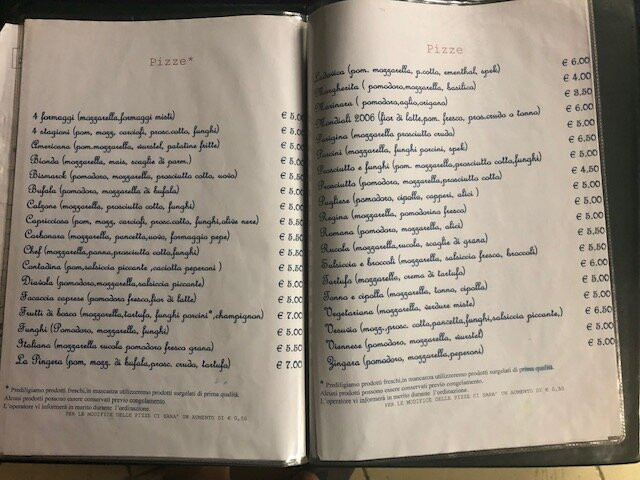 Pizze*
4 formaggi (mozzarella,formaggi misti) € 5,00
4 stagioni (pom, mozz, carciofi, prosc.cotto, funghi) € 5,50
Americana (pom.mozzarella, wurstel, patatine fritte) € 5,00
Bionda (mozzarella, mais, scaglie di parm.) € 5,00
Bismarck (pomodoro, mozzarella, prosciutto cotto, uovo) € 5,50
Bufala (pomodoro, mozzarella di bufala) € 5,00
Calzone (mozzarella, prosciutto cotto, funghi) € 5,00
Capricciosa (pom, mozz, carciofi, prosc.cotto, funghi,olive nere) € 5,50
Carbonara (mozzarella, pancetta,uovo, formaggio pepe) € 5,50
Chef (mozzarella,panna,prosciutto cotto,funghi) € 5,50
Contadina (pom,salsiccia piccante ,caciotta peperoni ) € 5,50
Diavola (pomodoro,mozzarella,salsiccia piccante) € 5,00
Focaccia caprese (pomodoro fresco,fior di latte) € 5,00
Frutti di bosco (mozzarella,tartufo, funghi porcini*,champignon) € 7,00
Funghi (Pomodoro, mozzarella, funghi) € 5,00
Italiana (mozzarella rucola pomodoro fresco grana) € 5,50
La Pingera (pom, mozz. di bufala,prosc. crudo, tartufo) € 7,00
* Prediligiamo prodotti freschi,in mancanza utilizzeremo prodotti surgelati di prima qualità.
Alcuni prodotti possono essere conservati previo congelamento.
L'operatore vi informerà in merito durante l'ordinazione.
PER LE MODIFICE DELLE PIZZE CI SARA' UN AUMENTO DI € 0,50
Pizze
Ludovica (pom. mozzarella, p.cotto, ementhal, spek) € 6,00
Margherita ( pomodoro,mozzarella, basilico) € 4,00
Marinara ( pomodoro,aglio,origano) € 3,50
Mondiali 2006 (fior di latte,pom. fresco, pros.crudo o tonno) € 6,00
Parigina (mozzarella prosciutto crudo) € 5,00
Porcini (mozzarella, funghi porcini, spek) € 6,50
Prosciutto e funghi (pom. mozzarella,prosciutto cotto,funghi) € 5,00
Prosciutto (pomodoro, mozzarella,prosciutto cotto) € 4,50
Pugliese (pomodoro, cipolla, capperi, alici ) € 5,00
Regina (mozzarella, pomodorino fresco) € 5,00
Romana (pomodoro, mozzarella, alici) € 5,00
Rucola (mozzarella,rucola, scaglie di grana) € 5,50
Salsiccia e broccoli (mozzarella, salsiccia fresca, broccoli) € 5,50
Tartufo (mozzarella, crema di tartufo) € 6,00
Tonno e cipolla (mozzarella, tonno, cipolla) € 5,00
Vegetariana (mozzarella, verdure miste) € 5,00
Vesuvio (mozz.,prosc. cotto,pancetta,funghi,salsiccia piccante,) € 6,50
Viennese (pomodoro, mozzarella, wurstel) € 5,00
Zingara (pomodoro, mozzarella,peperoni) € 5,00
* Prediligiamo prodotti freschi,in mancanza utilizzeremo prodotti surgelati di prima qualità.
Alcuni prodotti possono essere conservati previo congelamento.
L'operatore vi informerà in merito durante l'ordinazione.
PER LE MODIFICE DELLE PIZZE CI SARA' UN AUMENTO DI € 0,50